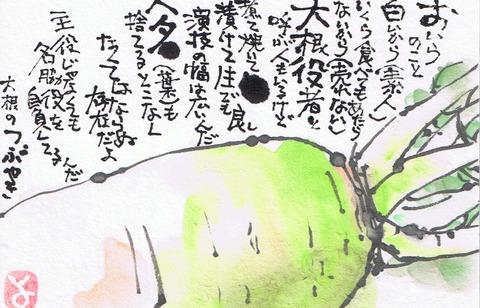 おいら
のこと
白いから(素人)
いくら食べてもあたら
ないから(売れない)
大根役者と
呼ぶ人もいるけど
煮て焼いて
漬けて生で良し
演技の幅は広いんだ
ヘタ(葉)も
捨てるとこなし
なくてはならぬ
存在だよ
主役じゃなくても
名脇役を
自負してるんだ
大根のつぶやき